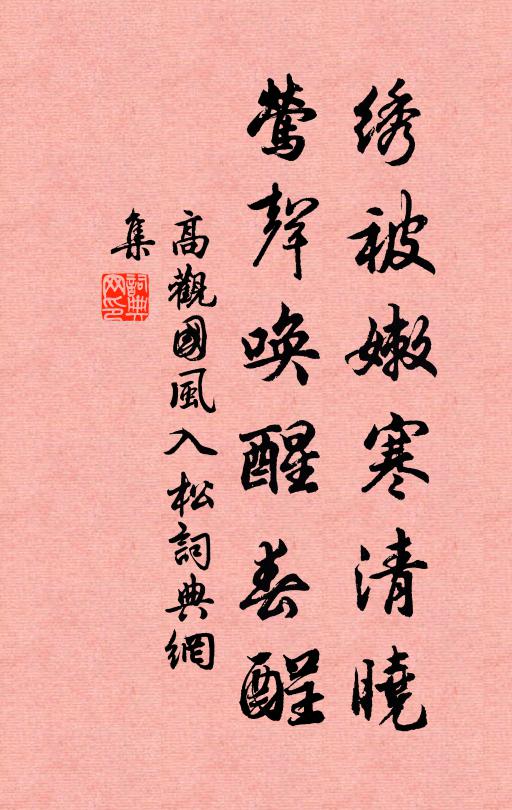 绣被嫩寒清曉
鶯聲唤醒春酲
高觀國風入松詞典網
集
詞典網印